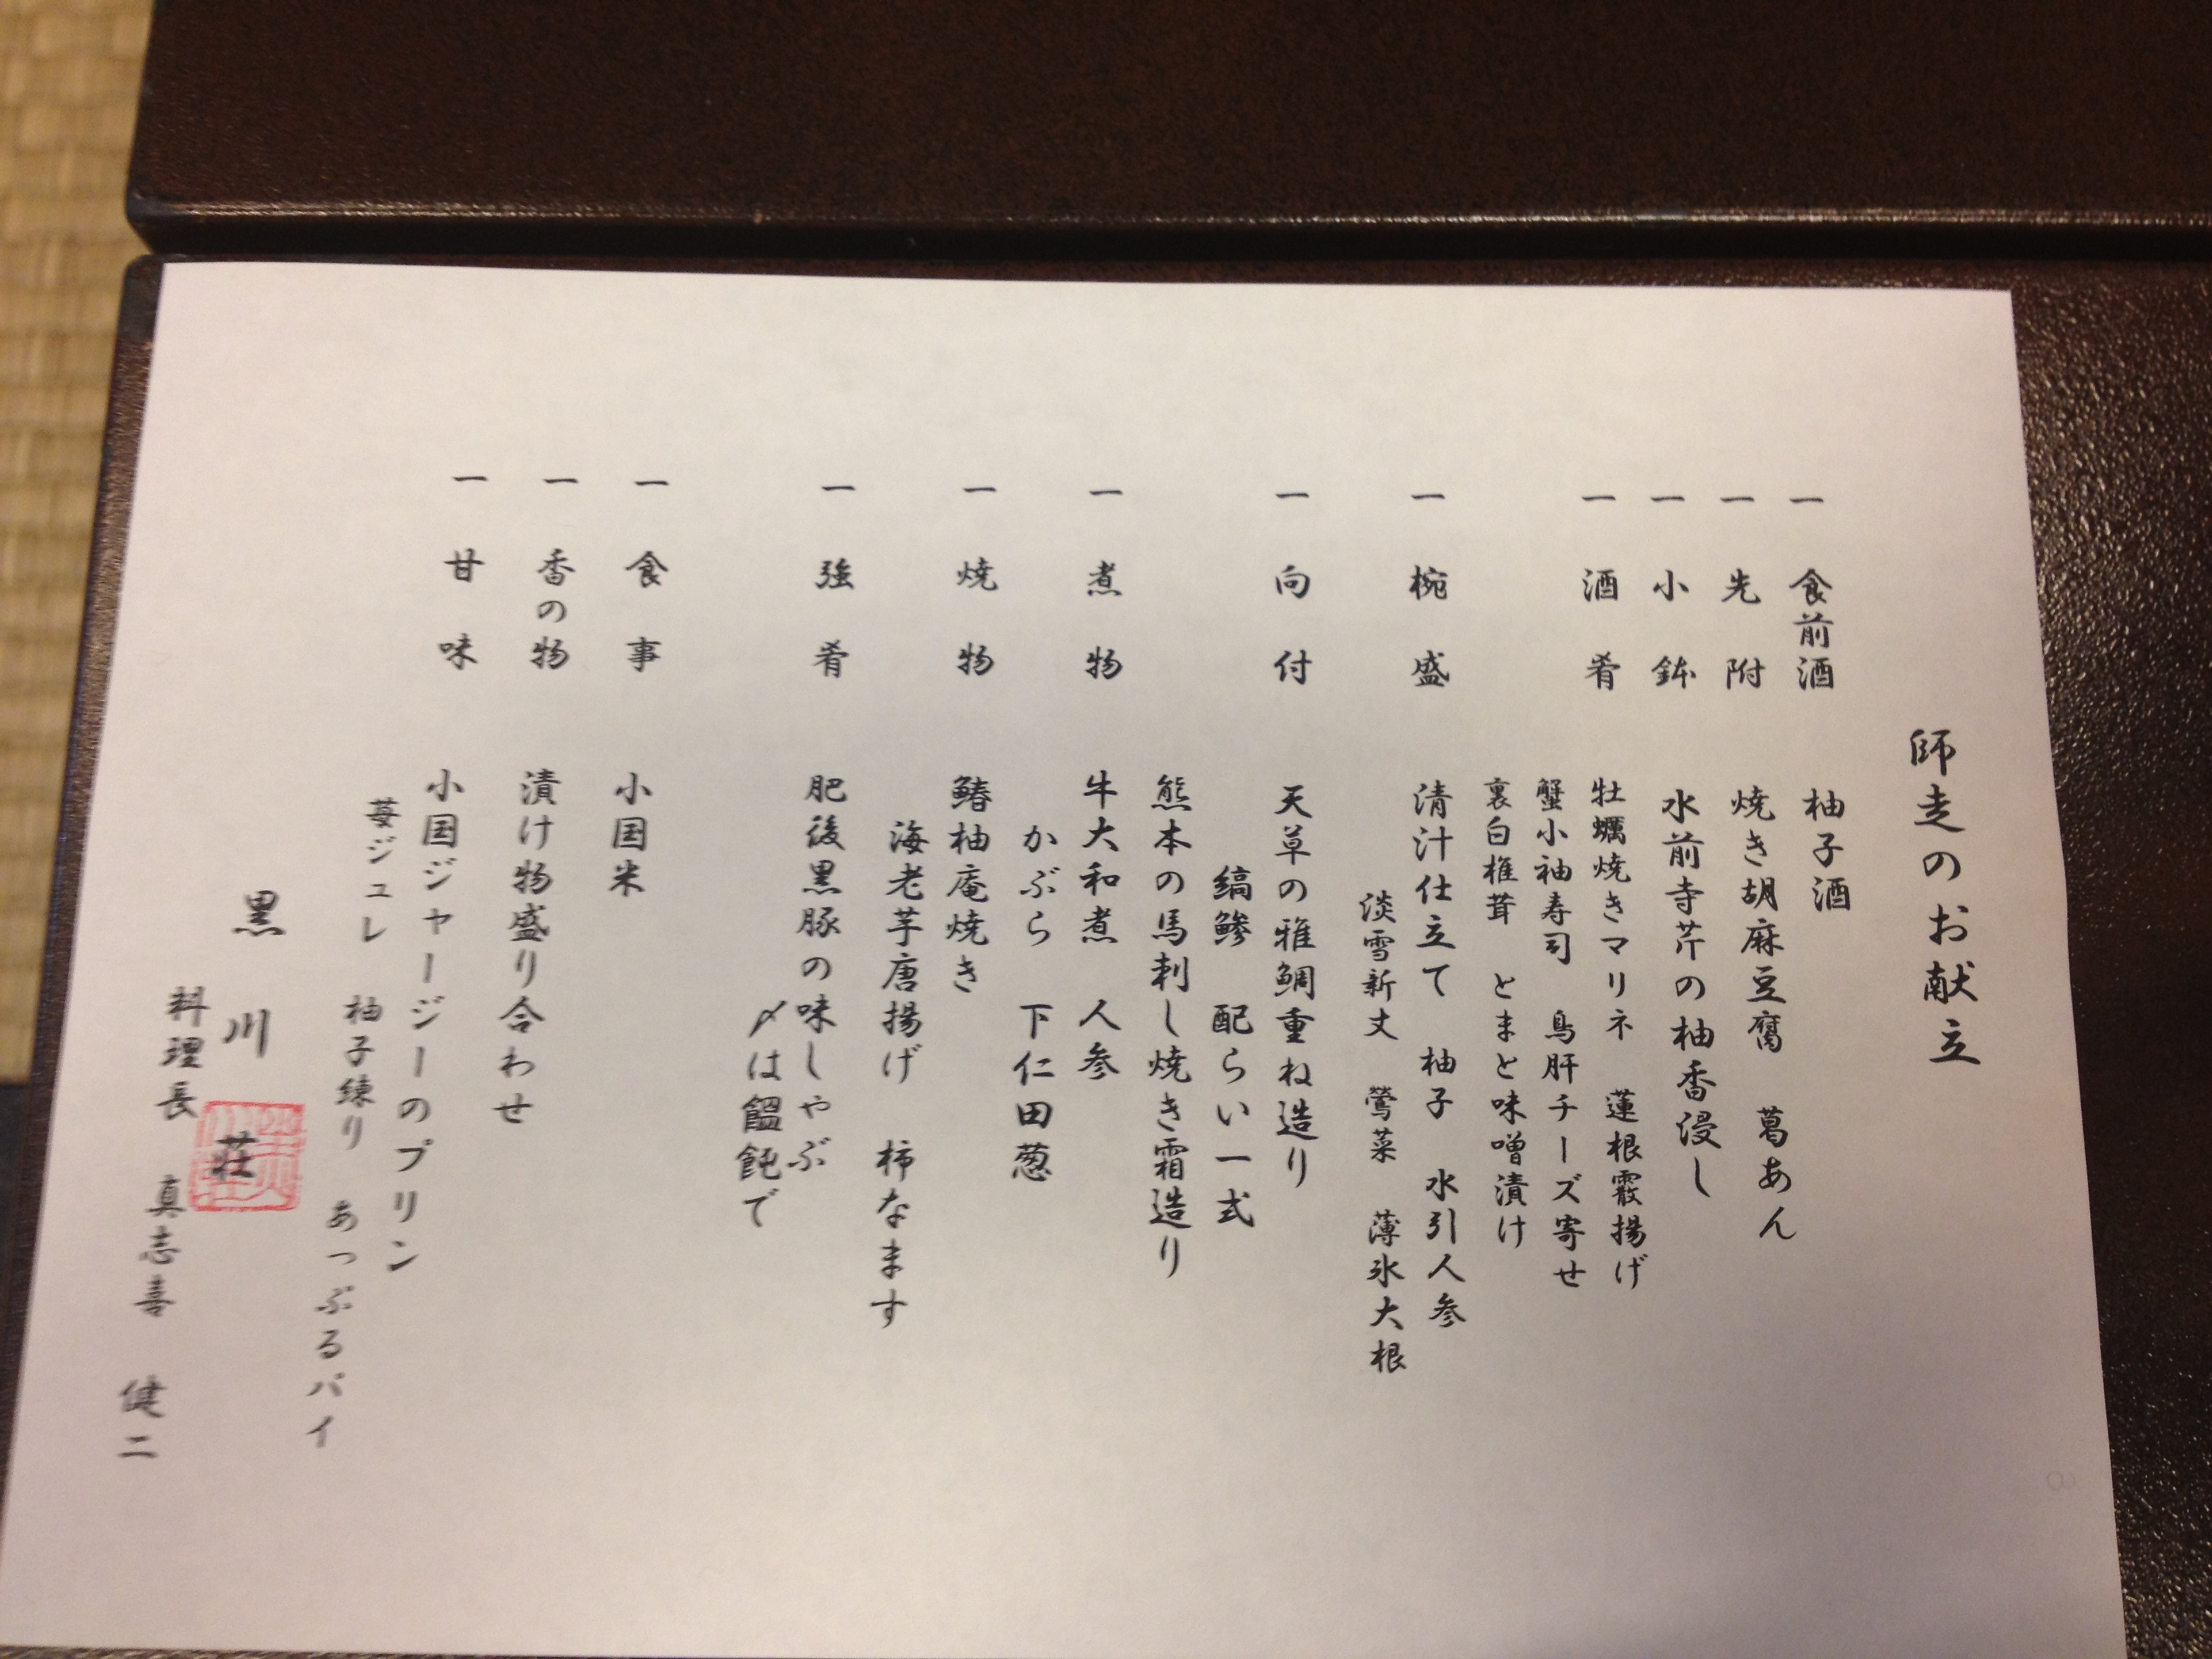 師走のお献立
一 食前酒 柚子酒
一 先附 焼き胡麻豆腐 葛あん
一 小鉢 水前寺芹の柚香浸し
一 酒肴 牡蠣焼きマリネ 蓮根霰揚げ
蟹小袖寿司 鳥肝チーズ寄せ
裏白椎茸 とまと味噌漬け
一 椀盛 清汁仕立て 柚子 水引人参
淡雪新丈 鶯菜 薄氷大根
一 向付 天草の雅鯛重ね造り
縞鯵 配らい一式
熊本の馬刺し焼き霜造り
一 煮物 牛大和煮 人参
かぶら 下仁田葱
一 焼物 鰆柚庵焼き
海老芋唐揚げ 柿なます
一 強肴 肥後黒豚の味しゃぶ
〆は饂飩で
一 食事 小国米
一 香の物 漬け物盛り合わせ
一 甘味 小国ジャージーのプリン
苺ジュレ 柚子練り あっぷるパイ
黒川荘
料理長 真志喜 健二